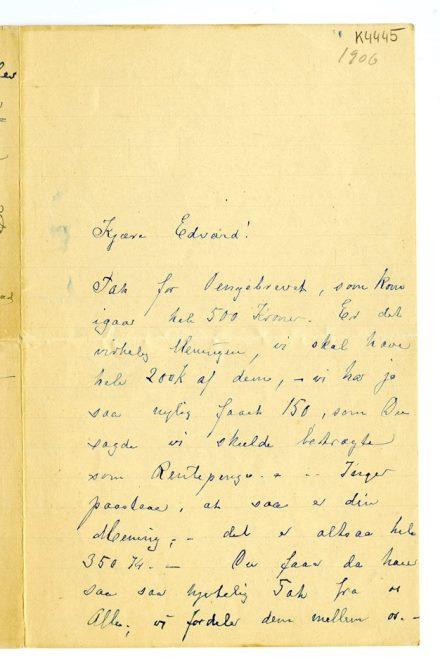 K4445
1906
Kjære Edvard!
Tak for Pengebrevet, som kom
igaar hele 500 Kroner. Er det
virkelig Meningen, vi skal have
hele 200K af dem, – vi har jo
saa nylig faaet 150, som Du
sagde vi skulde betragte
som Rentepenge. – Inger
paastaar, at saa er din
Mening, – det er altsaa hele
350 Kr. – Du faar da have
saa saa hjertelig Tak fra os
Alle; vi fordeler dem mellem os. –